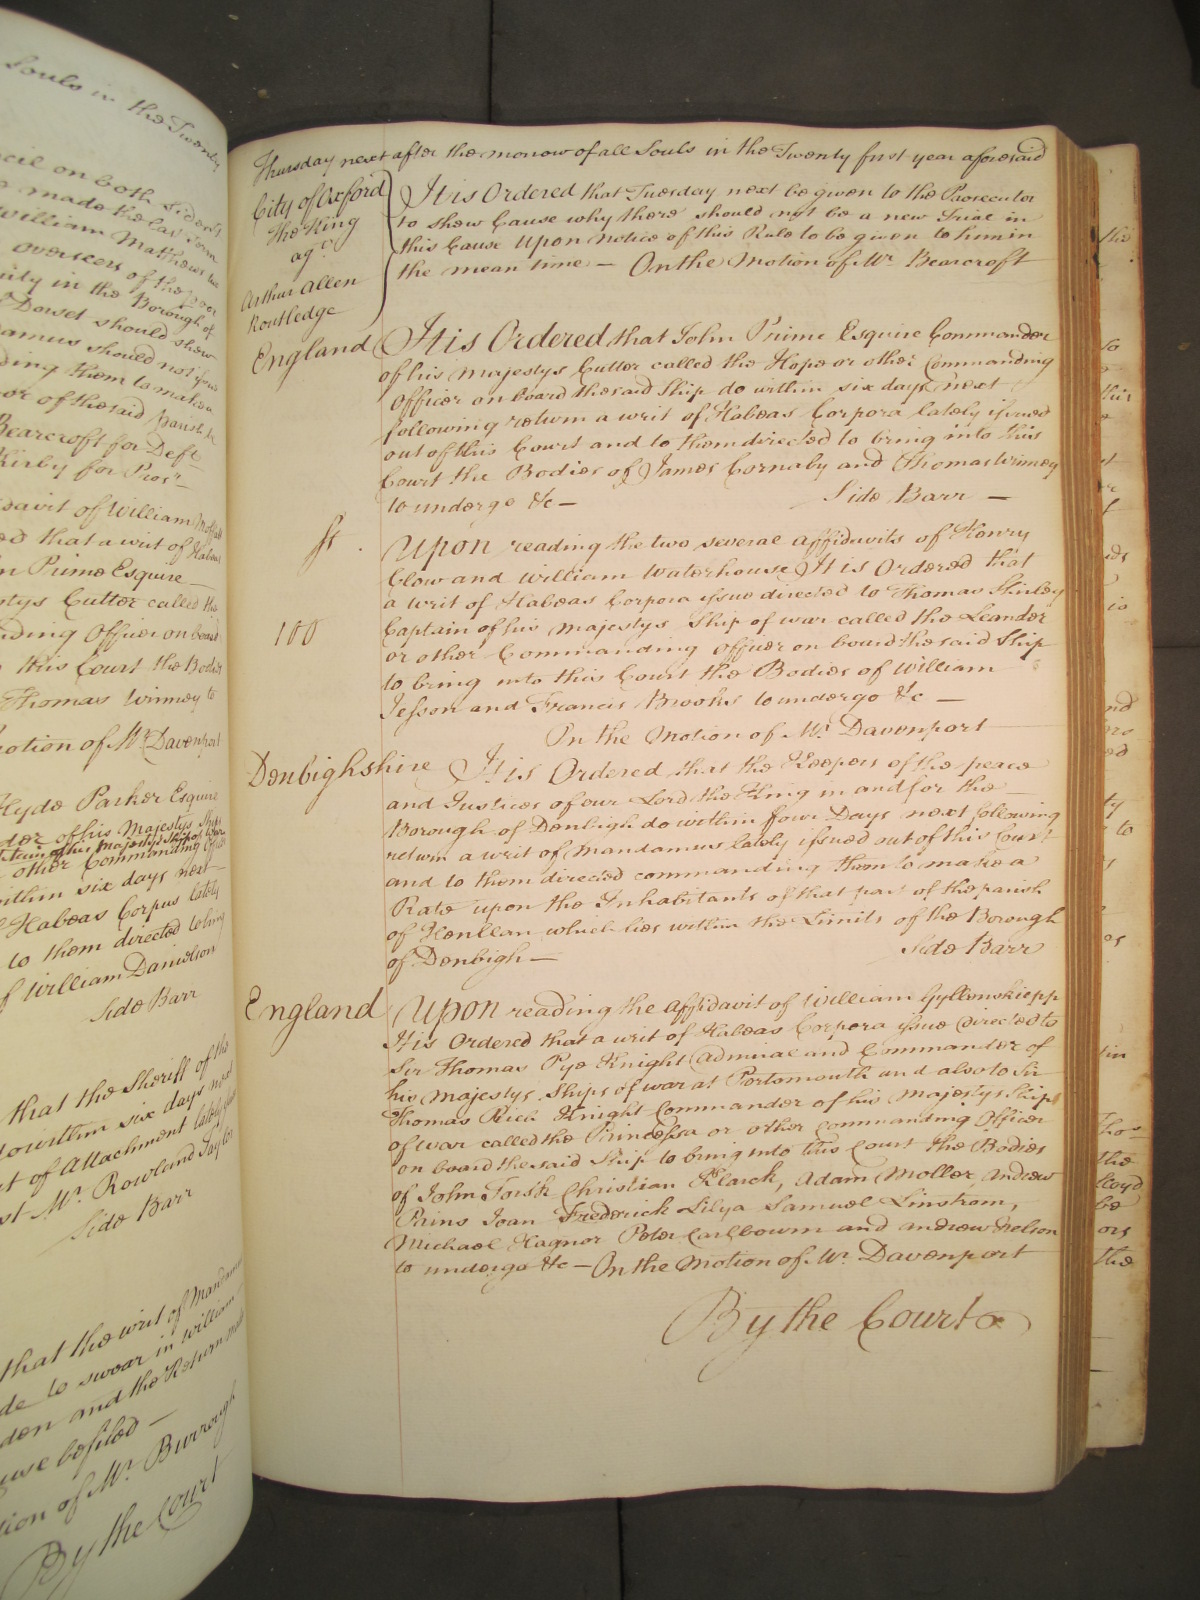 Souls in the Twenty
cil on both sides
made the last
William Mathews
overseers of the poor
in the Borough of
Dorset should shew
amus should not
ding them to make a
or of the said parish
Bearcroft for Deft
Kirby for Prosr
davit of William
ed that a writ of
n Prime Esquire
stys Cutter called the
ding Officer on board
this Court the Bodies
Thomas Winney to
motion of Mr. Davenport
Hyde Parker Esquire
der of his Majestys Ship
other Commanding
within six days next
Habeas Corpus lately
to them directed to bring
of William Danielson
Side Barr
that the Sheriff of the
do within six days next
of Attachment lately
st Mr. Rowland
Side Barr
that the writ of
de to swear in William
den and the Return
use be filed
tion of Mr. Burrough
By the Court
Thursday next after the morrow of all Souls in the Twenty first year aforesaid
City of Oxford
The King
agt.
Arthur Allen
Routledge
It is Ordered that Tuesday next be given to the Prosecutor
to shew Cause why there should not be a new Trial in
this Cause Upon notice of this Rule to be given to him in
the mean time — On the Motion of Mr. Bearcroft
England It is Ordered that John Prime Esquire Commander
of his Majestys Cutter called the Hope or other Commanding
Officer on board the said Ship do within six days next
following return a writ of Habeas Corpora lately issued
out of this Court and to them directed to bring into this
Court the Bodies of James Cornaby and Thomas Winney
to undergo &c — Side Barr —
St. Upon reading the two several affidavits of Henry
Clow and William Waterhouse It is Ordered that
a writ of Habeas Corpora issue directed to Thomas Shirley
100 Captain of his Majestys Ship of war called the Leander
or other Commanding officer on board the said Ship
to bring into this Court the Bodies of William
Jesson and Francis Brooks to undergo &c —
On the Motion of Mr. Davenport
Denbighshire It is Ordered that the Keepers of the peace
and Justices of our Lord the King in and for the
Borough of Denbigh do within four Days next following
return a writ of Mandamus lately issued out of this Court
and to them directed commanding them to make a
Rate upon the Inhabitants of that part of the parish
of Henllan which lies within the Limits of the Borough
of Denbigh — Side Barr
England Upon reading the Affidavit of William Gyllenskiepp
It is Ordered that a writ of Habeas Corpora issue directed to
Sir Thomas Pye Knight Admiral and Commander of
his Majestys Ships of war at Portsmouth and also to Sir
Thomas Rich Knight Commander of his Majestys Ship
of war called the Princessa or other Commanding Officer
on board the said Ship to bring into this Court the Bodies
of John Torsk Christian Klarck, Adam Moller, Andrew
Prins Joan Frederick Lilya Samuel Linstrom,
Michael Hagnor Peter Carlbourn and Andrew Nelson
to undergo &c — On the Motion of Mr. Davenport
By the Court